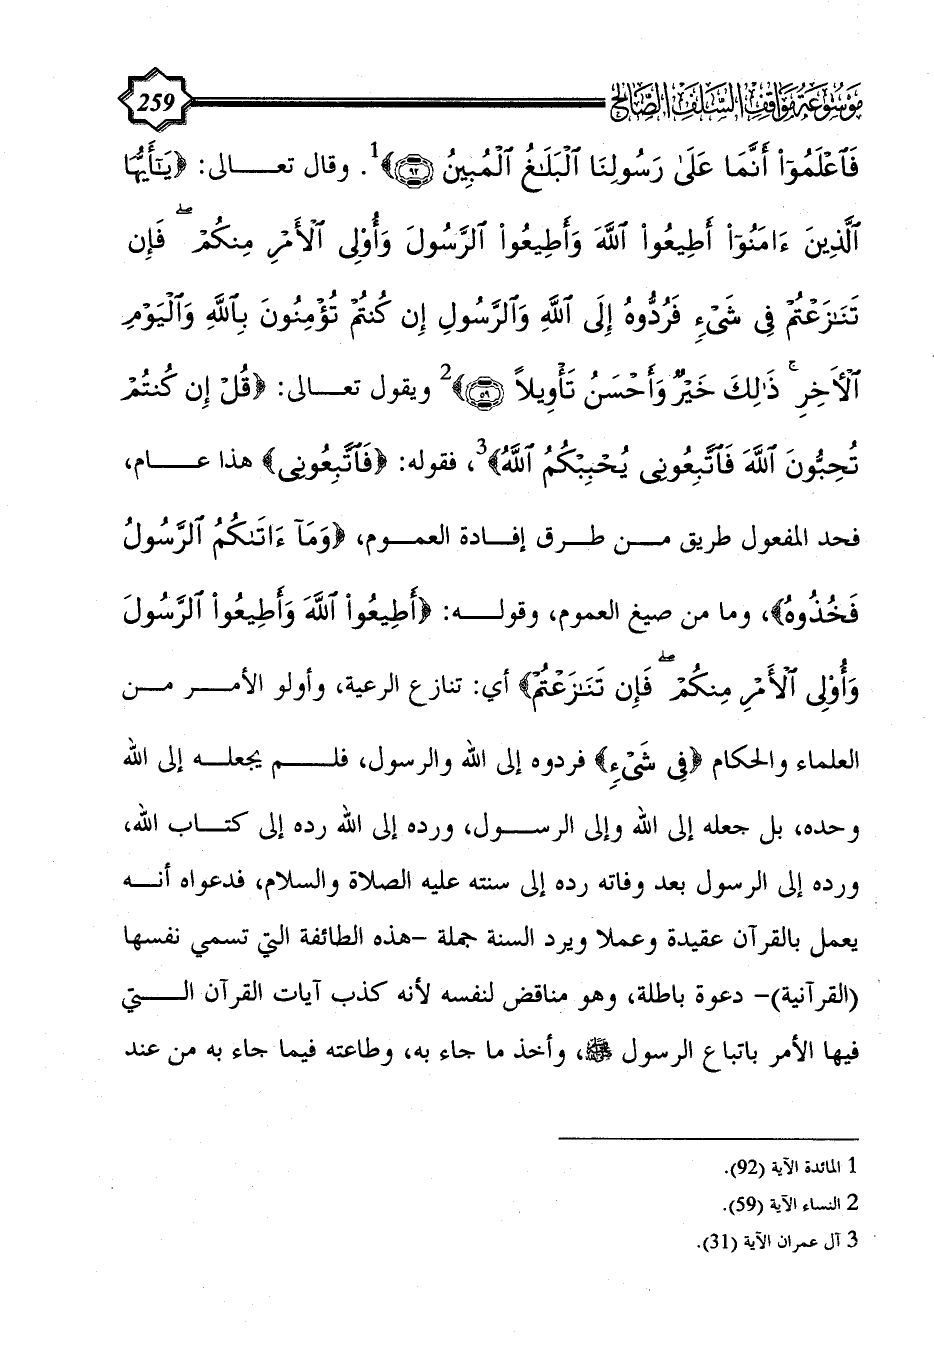 موسوعة مواقف السلف الصالح
259
فَٱعْلَمُوٓا۟ أَنَّمَا عَلَىٰ رَسُولِنَا ٱلْبَلَٰغُ ٱلْمُبِينُ ﴿٩٢﴾ ﴾1. وقال تعـــالى: ﴿يَٰٓأَيُّهَا
ٱلَّذِينَ ءَامَنُوٓا۟ أَطِيعُوا۟ ٱللَّهَ وَأَطِيعُوا۟ ٱلرَّسُولَ وَأُو۟لِى ٱلْأَمْرِ مِنكُمْ ۖ فَإِن
تَنَٰزَعْتُمْ فِى شَىْءٍ فَرُدُّوهُ إِلَى ٱللَّهِ وَٱلرَّسُولِ إِن كُنتُمْ تُؤْمِنُونَ بِٱللَّهِ وَٱلْيَوْمِ
ٱلْءَاخِرِ ۚ ذَٰلِكَ خَيْرٌ وَأَحْسَنُ تَأْوِيلًا ﴿٥٩﴾ ﴾2 ويقول تعـــالى: ﴿قُلْ إِن كُنتُمْ
تُحِبُّونَ ٱللَّهَ فَٱتَّبِعُونِى يُحْبِبْكُمُ ٱللَّهُ﴾3، فقوله: ﴿فَٱتَّبِعُونِى﴾ هذا عـــام،
فحد المفعول طريق مـــن طـــرق إفـــادة العمـــوم، ﴿وَمَآ ءَاتَىٰكُمُ ٱلرَّسُولُ
فَخُذُوهُ﴾، وما من صيغ العموم، وقولـــه: ﴿أَطِيعُوا۟ ٱللَّهَ وَأَطِيعُوا۟ ٱلرَّسُولَ
وَأُو۟لِى ٱلْأَمْرِ مِنكُمْ ۖ فَإِن تَنَٰزَعْتُمْ﴾ أي: تنازع الرعية، وأولو الأمـــر مـــن
العلماء والحكام ﴿فِى شَىْءٍ﴾ فردوه إلى الله والرسول، فلـــم يجعلـــه إلى الله
وحده، بل جعله إلى الله وإلى الرســـول، ورده إلى الله رده إلى كتـــاب الله،
ورده إلى الرسول بعد وفاته رده إلى سنته عليه الصلاة والسلام، فدعواه أنـــه
يعمل بالقرآن عقيدة وعملا ويرد السنة جملة -هذه الطائفة التي تسمي نفسها
(القرآنية)- دعوة باطلة، وهو مناقض لنفسه لأنه كذب آيات القرآن الـــتي
فيها الأمر باتباع الرسول ﷺ، وأخذ ما جاء به، وطاعته فيما جاء به من عند
1 المائدة الآية (92).
2 النساء الآية (59).
3 آل عمران الآية (31).